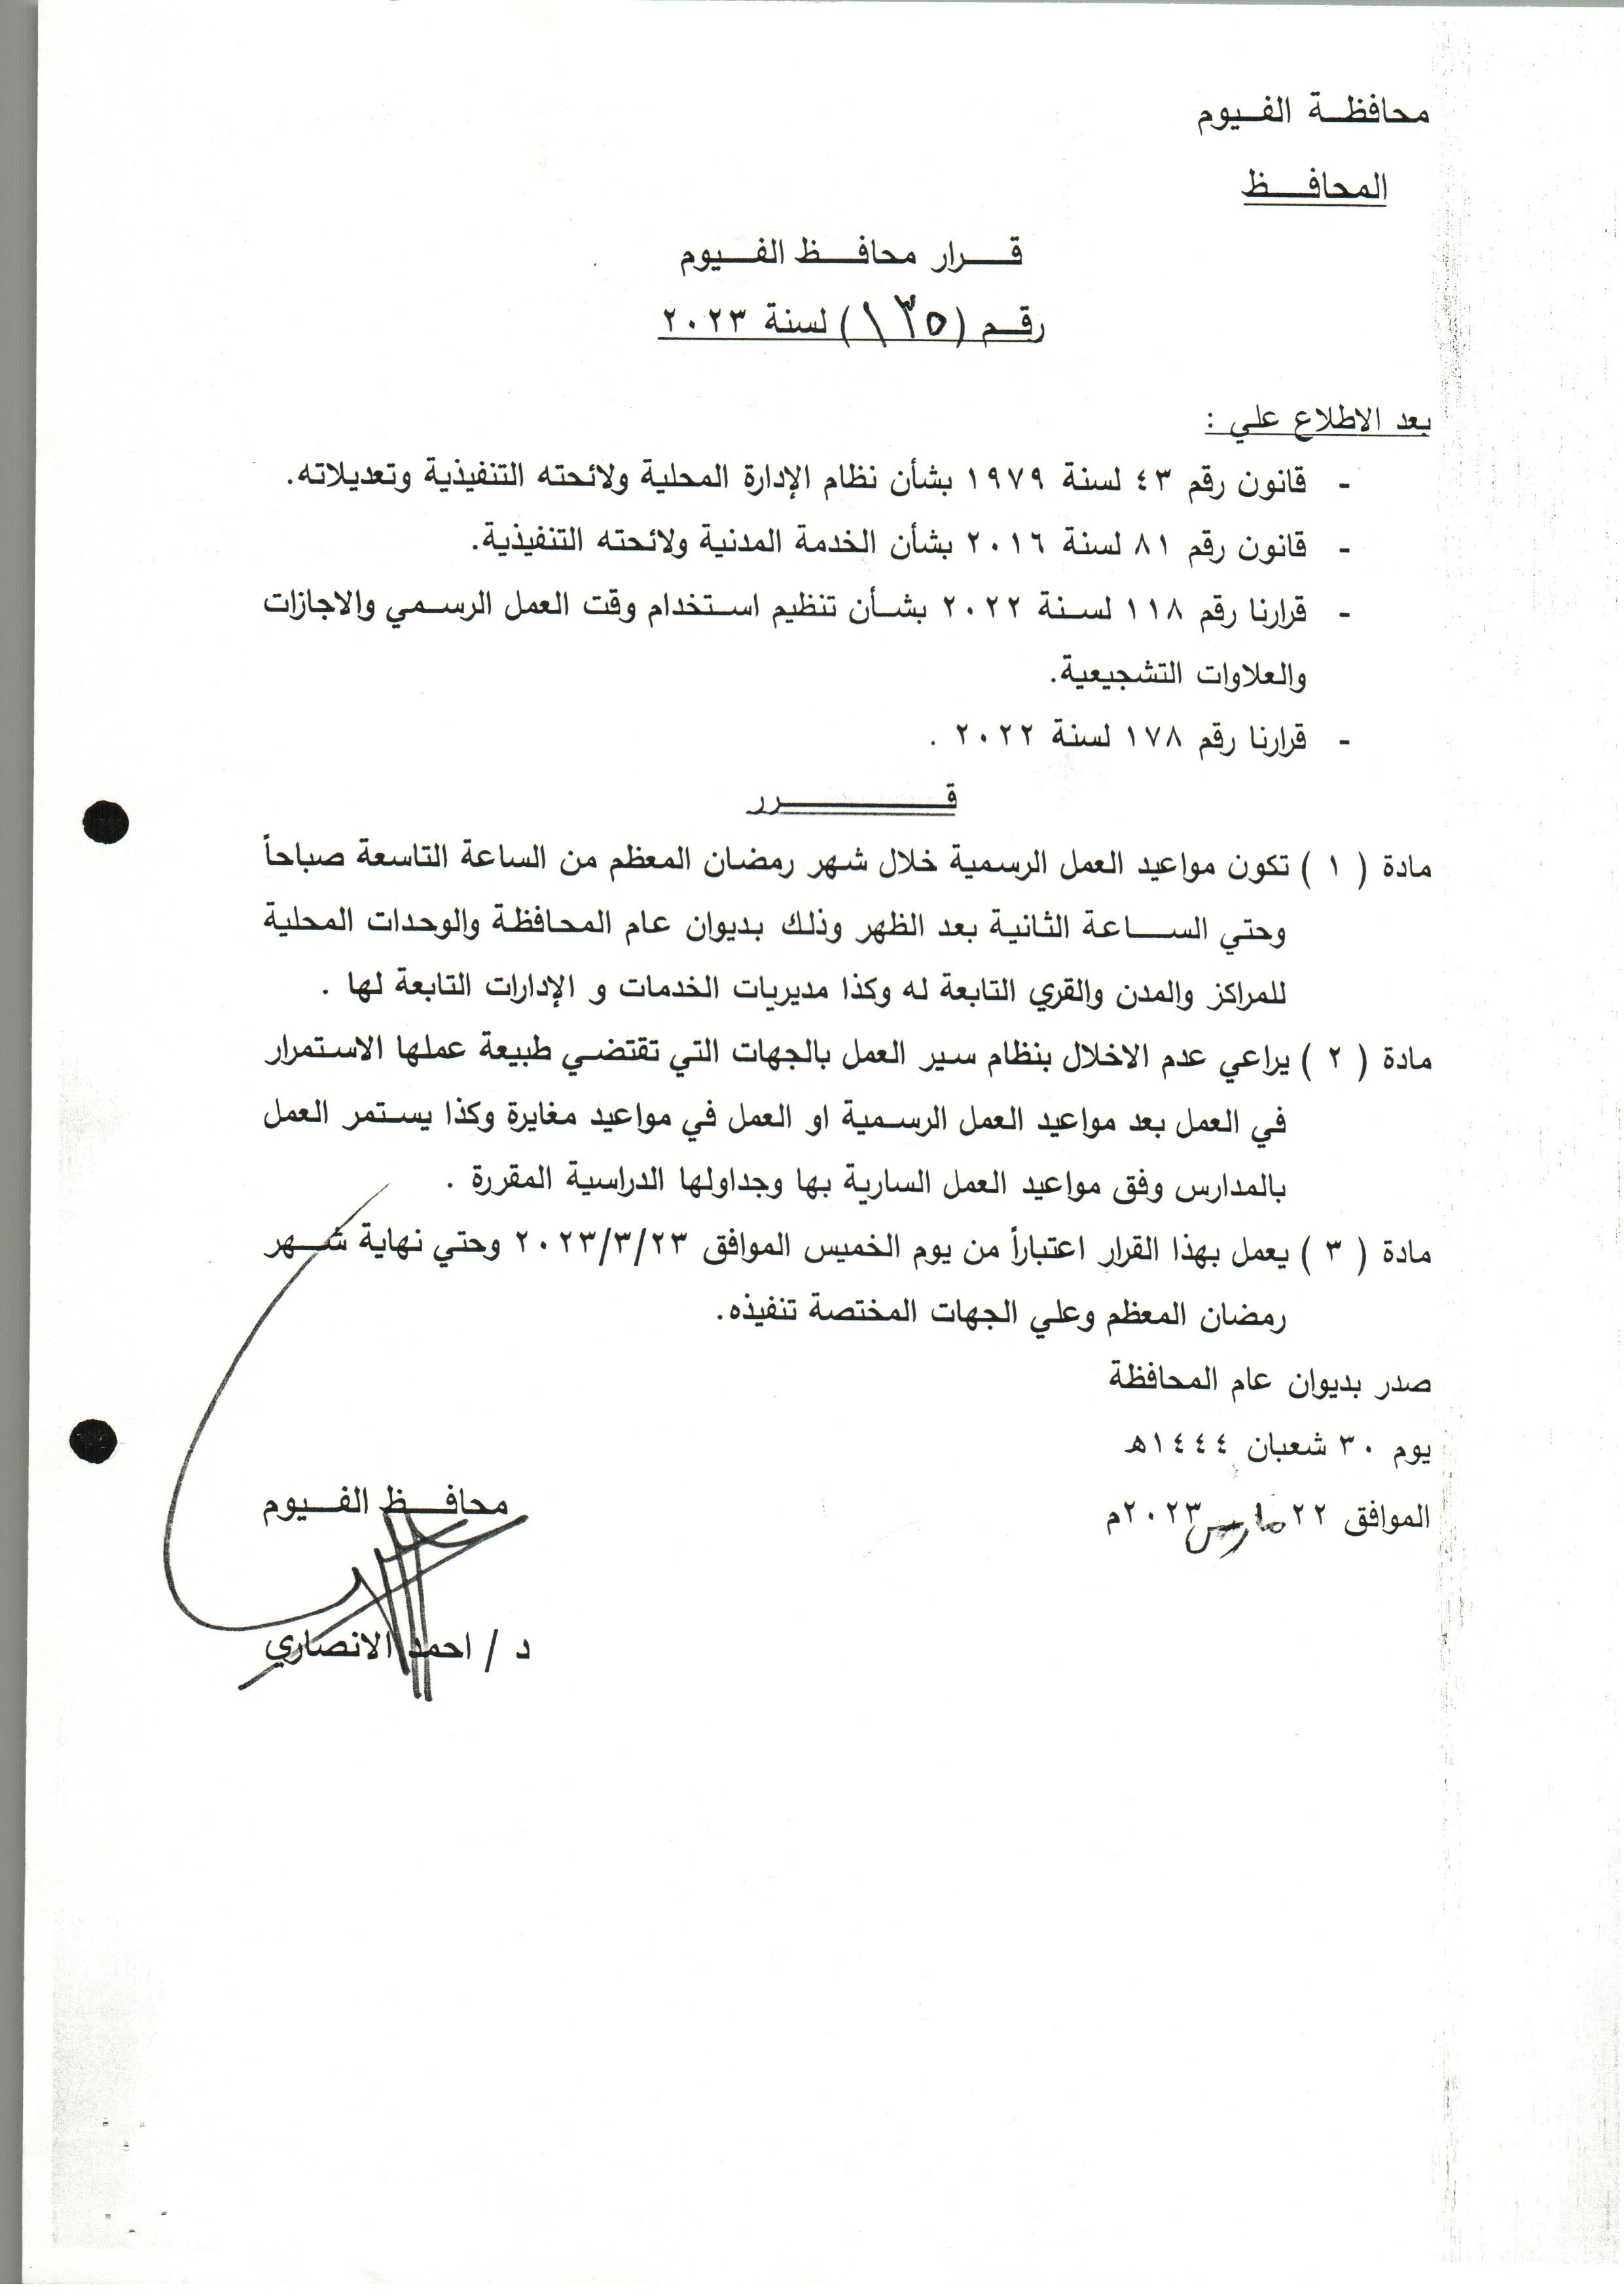 محافظة الفيوم
المحافظ
قرار محافظ الفيوم
رقم (١٣٥) لسنة ٢٠٢٣
بعد الاطلاع علي :
- قانون رقم ٤٣ لسنة ١٩٧٩ بشأن نظام الإدارة المحلية ولائحته التنفيذية وتعديلاته.
- قانون رقم ٨١ لسنة ٢٠١٦ بشأن الخدمة المدنية ولائحته التنفيذية.
- قرارنا رقم ١١٨ لسنة ٢٠٢٢ بشأن تنظيم استخدام وقت العمل الرسمي والاجازات
والعلاوات التشجيعية.
- قرارنا رقم ١٧٨ لسنة ٢٠٢٢ .
قرر
مادة ( ١ ) تكون مواعيد العمل الرسمية خلال شهر رمضان المعظم من الساعة التاسعة صباحاً
وحتي الساعة الثانية بعد الظهر وذلك بديوان عام المحافظة والوحدات المحلية
للمراكز والمدن والقري التابعة له وكذا مديريات الخدمات و الإدارات التابعة لها .
مادة ( ٢ ) يراعي عدم الاخلال بنظام سير العمل بالجهات التي تقتضي طبيعة عملها الاستمرار
في العمل بعد مواعيد العمل الرسمية او العمل في مواعيد مغايرة وكذا يستمر العمل
بالمدارس وفق مواعيد العمل السارية بها وجداولها الدراسية المقررة .
مادة ( ٣ ) يعمل بهذا القرار اعتباراً من يوم الخميس الموافق ٢٠٢٣/٣/٢٣ وحتي نهاية شهر
رمضان المعظم وعلي الجهات المختصة تنفيذه.
صدر بديوان عام المحافظة
يوم ٣٠ شعبان ١٤٤٤هـ
الموافق ٢٢ مارس ٢٠٢٣م
محافظ الفيوم
د / احمد الانصاري